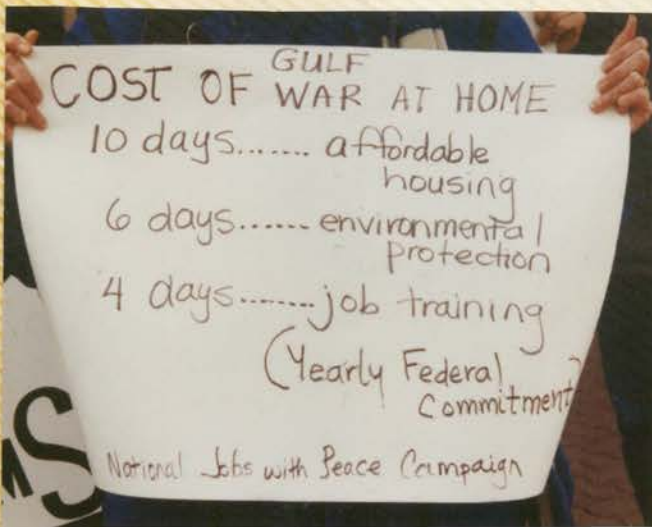 GULF
COST OF WAR AT HOME
10 days....... affordable
housing
6 days...... environmental
protection
4 days....... job training
(Yearly Federal
Commitment)
National Jobs with Peace Campaign
MS